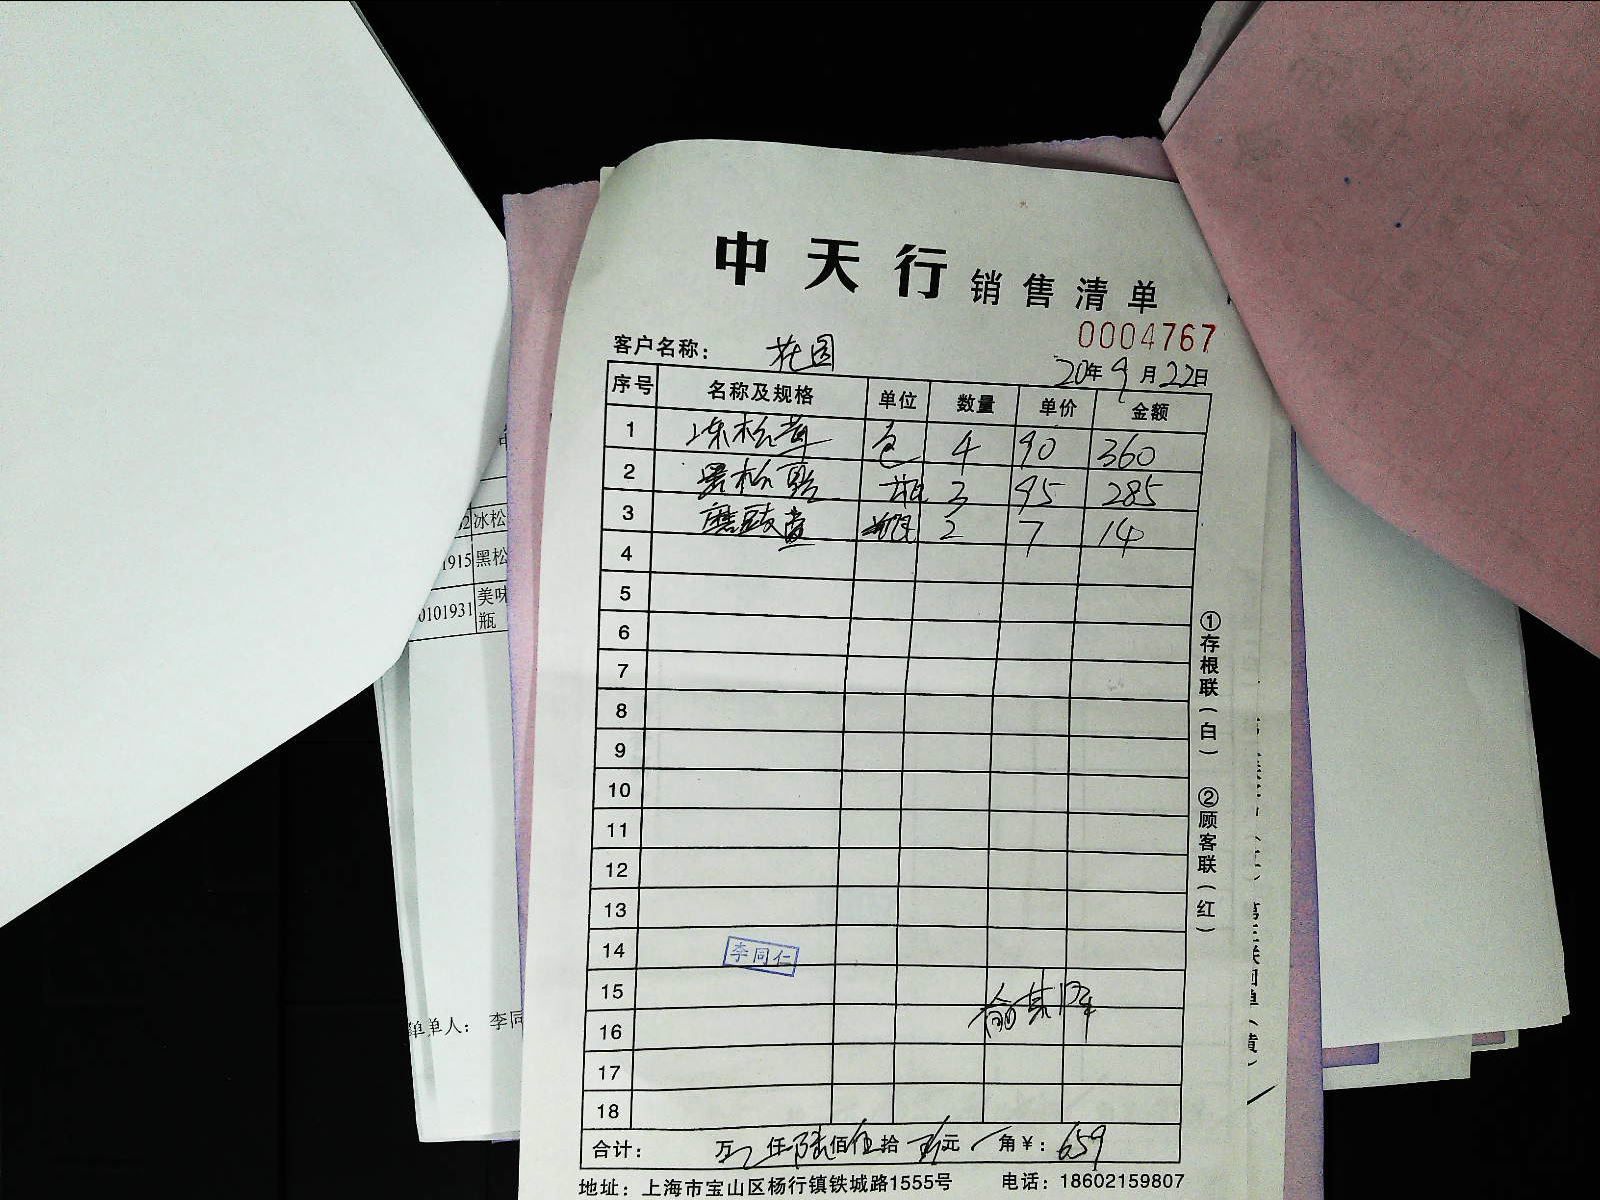 中天行 销售清单
0004767
客户名称： 花园
20年9月22日
序号 名称及规格 单位 数量 单价 金额
1 冻松茸 包 4 90 360
2 黑松露 瓶 3 95 285
3 蘑菇 2 7 14
4
5
6
7
8
9
10
11
12
13
14 李同仁
15
16
17
18
合计： 万 仟 陆佰伍拾 玖元 角￥： 659
地址：上海市宝山区杨行镇铁城路1555号 电话：18602159807
①存根联（白） ②顾客联（红）
冰松
1915 黑松
0101931 美味
瓶
单人： 李同